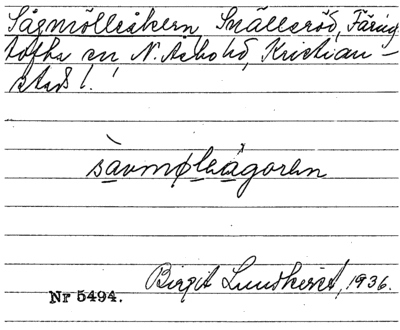 Sågmölleåkern, Snällsröd, Färing
tofta sn N. Åsbo hd, Kristian-
stads l.
sàvmøleågoren
Birgit Lundkvist, 1936.
Nr 5494.